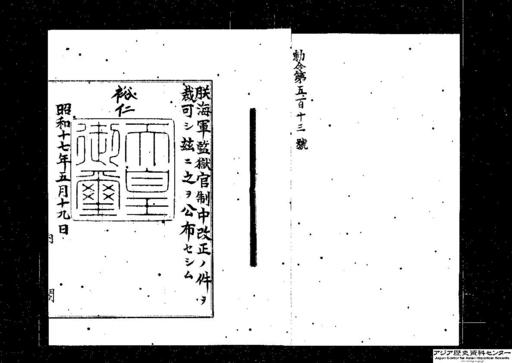 勅令第五百十三號
朕海軍監獄官制中改正ノ件ヲ
裁可シ玆ニ之ヲ公布セシム
裕仁
天皇
御璽
昭和十七年五月十九日
アジア歴史資料センター
Japan Center for Asian Historical Records